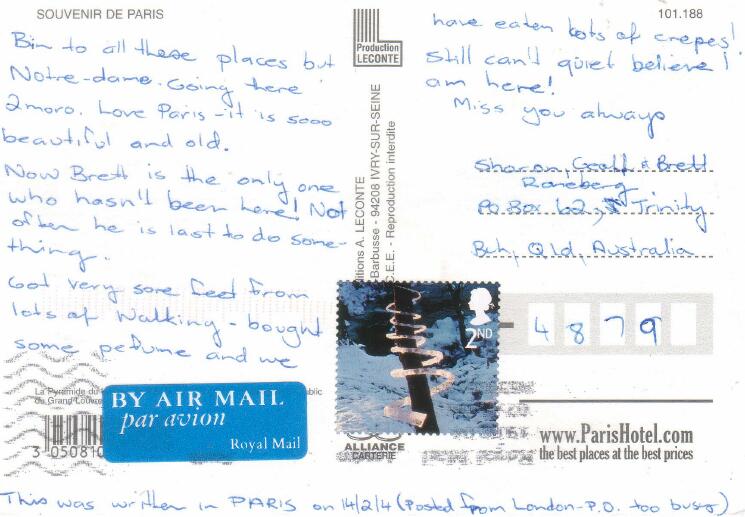 SOUVENIR DE PARIS
101.188
Bin to all these places but
Notre-dame. Going there
2moro. Love Paris - it is sooo
beautiful and old.
Now Brett is the only one
who hasn't been here! Not
often he is last to do some-
thing.
Got very sore feet from
lots of walking - bought
some pefume and we
have eaten lots of crepes!
Still can't quiet believe I
am here!
Miss you always
Production
LECONTE
itions A. LECONTE
-Barbusse - 94208 IVRY-SUR-SEINE
C.E.E. - Reproduction interdite
Sharon, Geoff & Brett
Raneberg
PO Box 62, Trinity
Bch, Qld, Australia
2ND
4879
La Pyramide du
du Grand Louvre
blic
BY AIR MAIL
par avion
Royal Mail
3 050810
ALLIANCE
CARTERIE
www.ParisHotel.com
the best places at the best prices
This was written in PARIS on 14/2/4 (Posted from London - P.O. too busy)